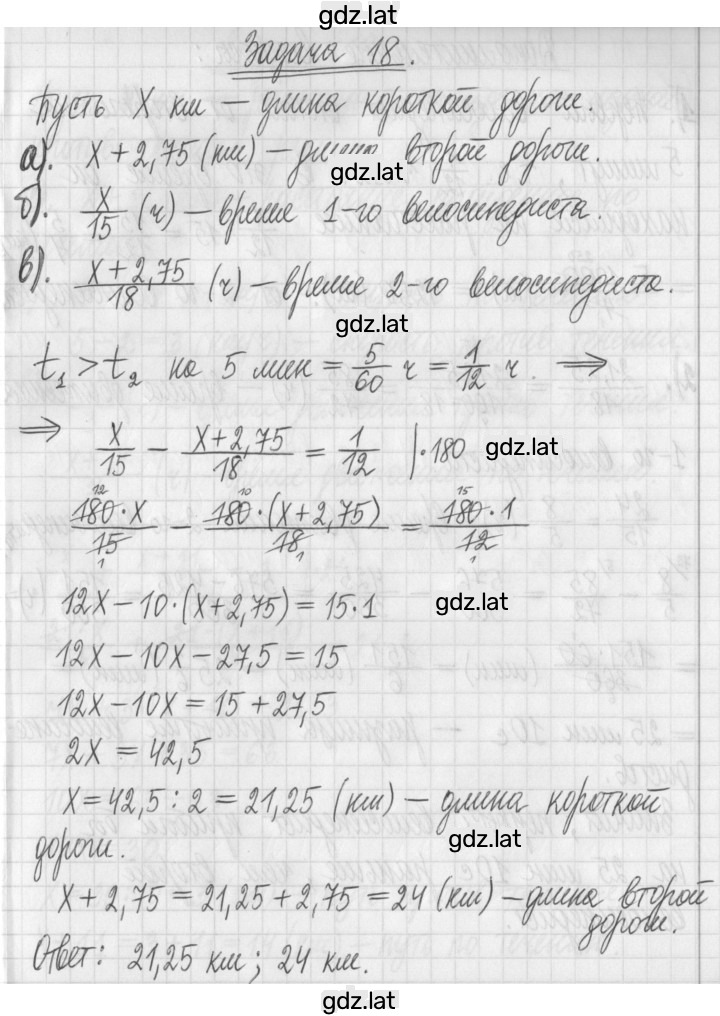 gdz.lat
Задача 18.
Пусть X км – длина короткой дороги.
а). X + 2,75 (км) – второй дороги.
gdz.lat
б). X/15 (ч) – время 1-го велосипедиста.
в). (X + 2,75)/18 (ч) – время 2-го велосипедиста.
gdz.lat
t₁ > t₂ на 5 мин = 5/60 ч = 1/12 ч. ⇒
⇒ X/15 – (X + 2,75)/18 = 1/12 |·180 gdz.lat
12 10 15
180·X/15 – 180·(X + 2,75)/18 = 180·1/12
1 1 1
12X – 10·(X + 2,75) = 15·1 gdz.lat
12X – 10X – 27,5 = 15
12X – 10X = 15 + 27,5
2X = 42,5
X = 42,5 : 2 = 21,25 (км) – длина короткой
дороги. gdz.lat
X + 2,75 = 21,25 + 2,75 = 24 (км) – длина второй
дороги.
Ответ: 21,25 км; 24 км.
gdz.lat